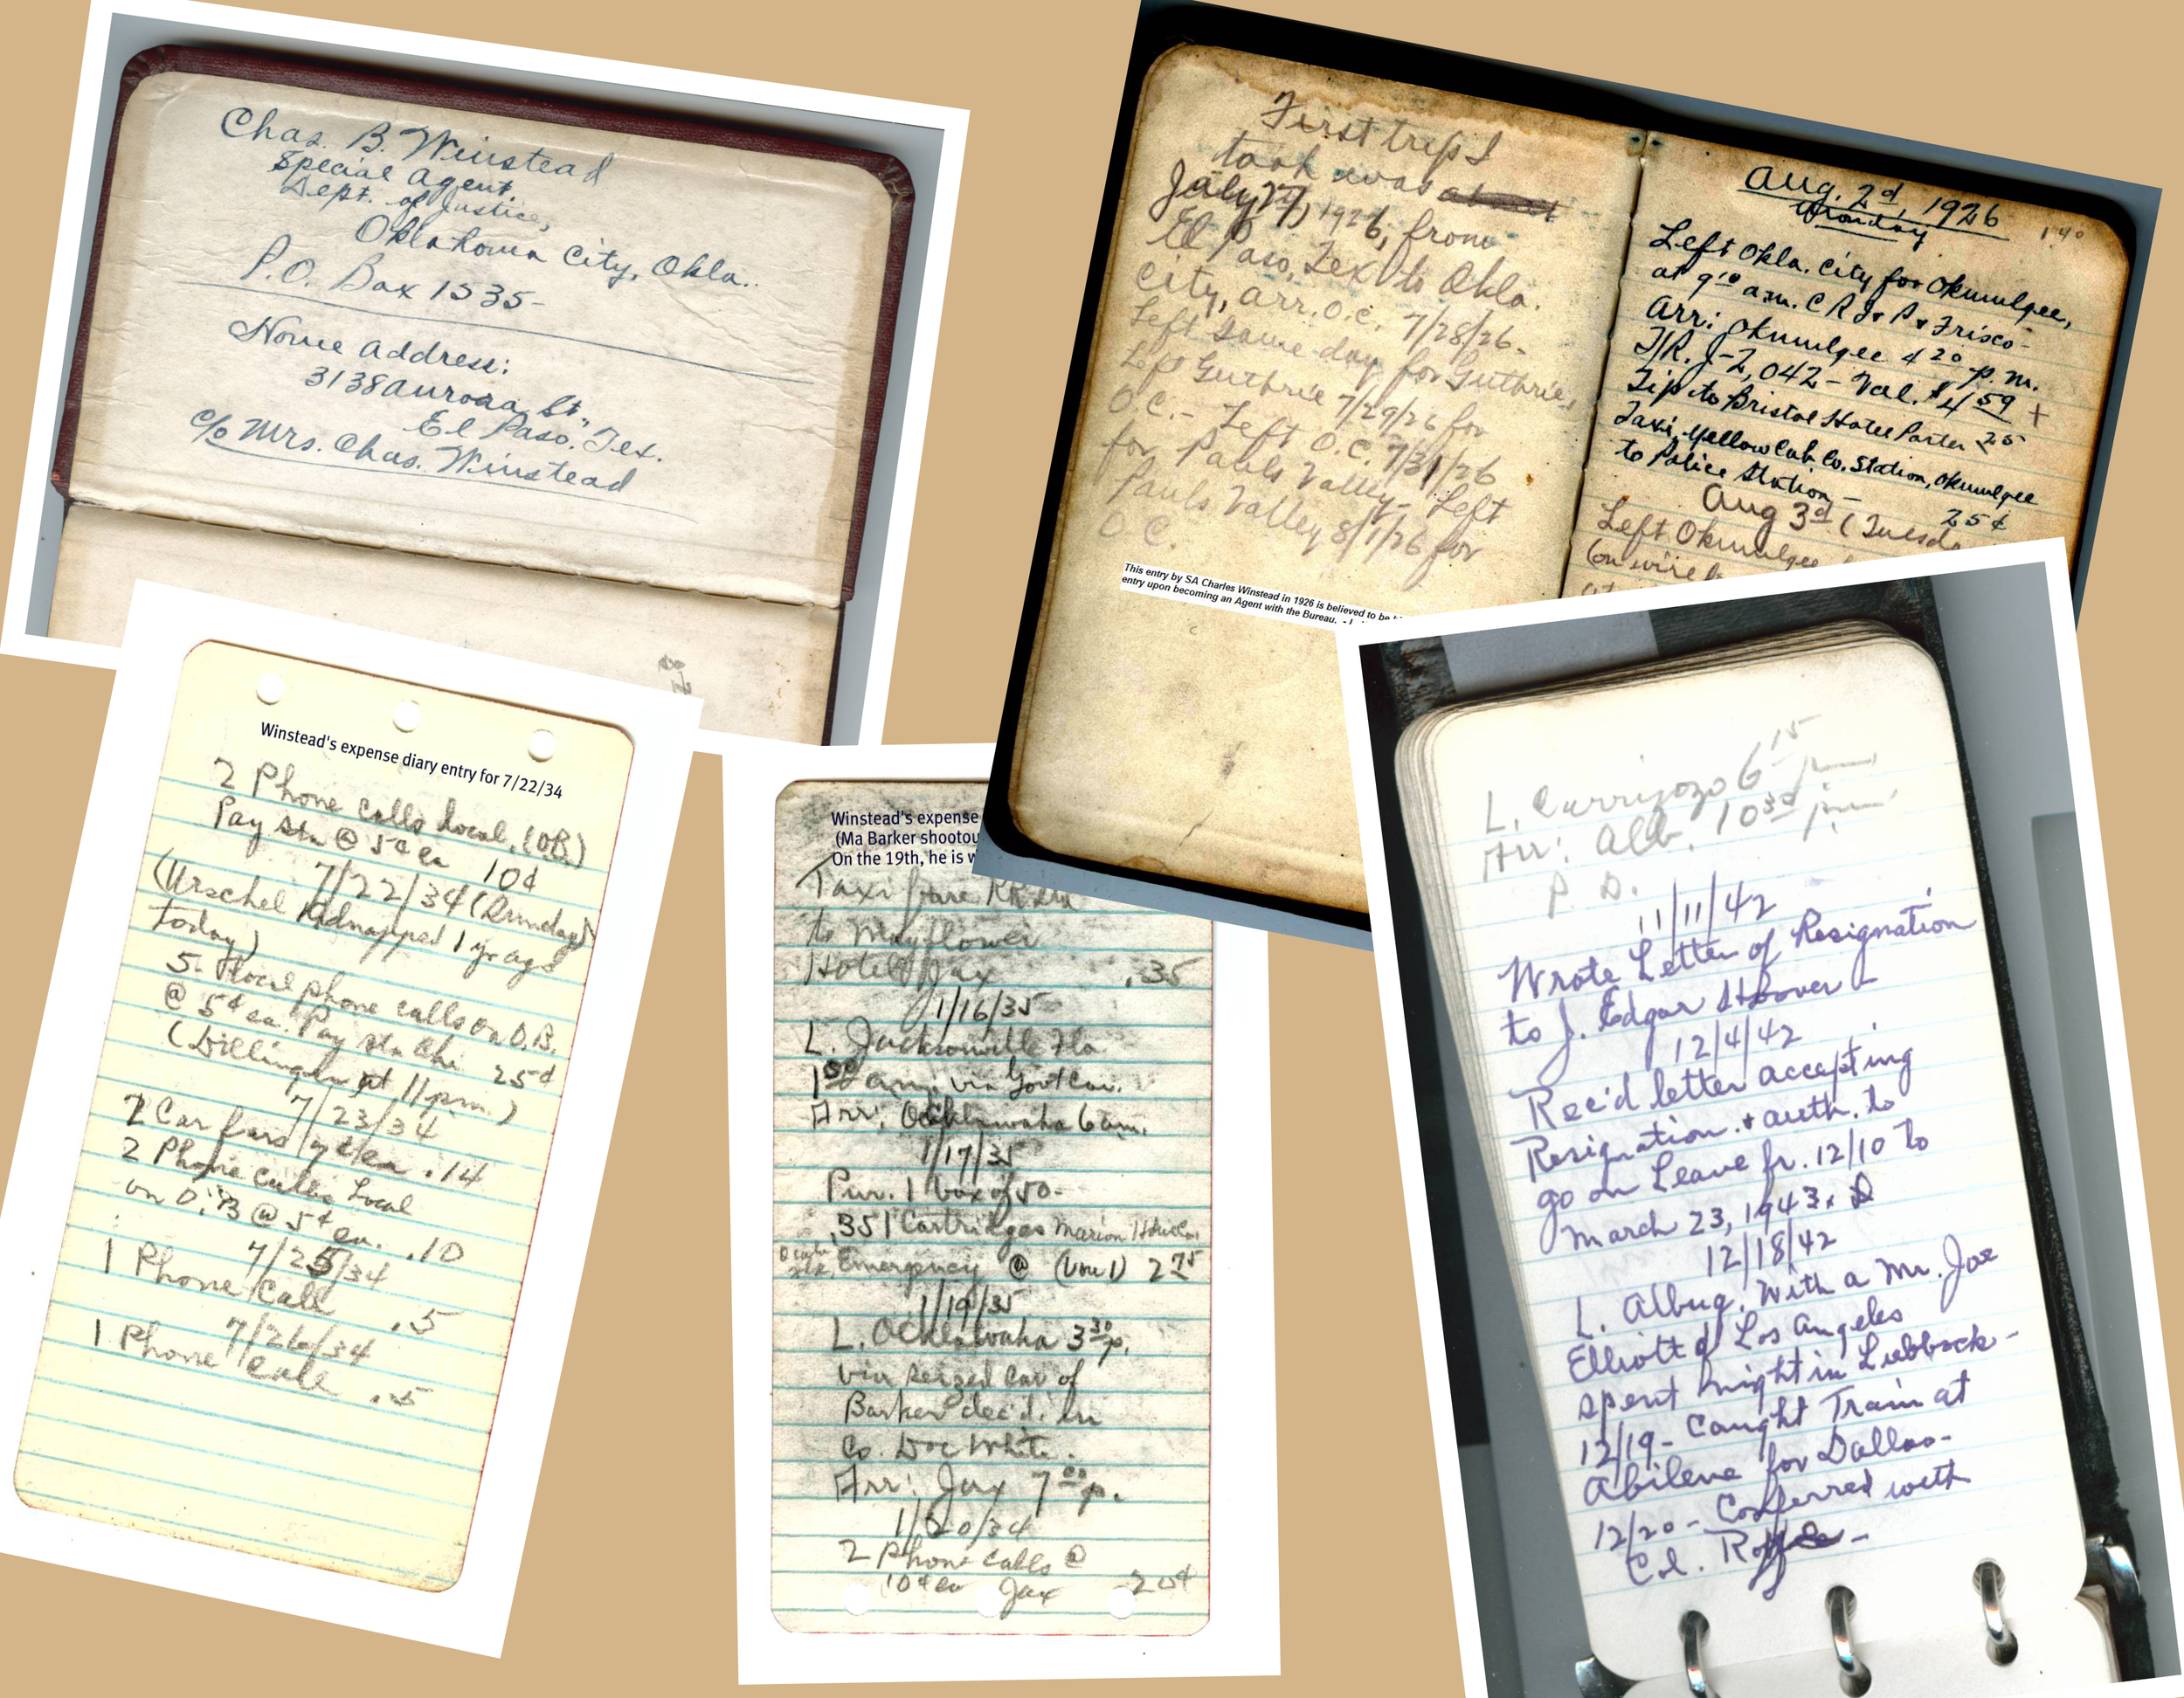 Chas. B. Winstead
Special Agent
Dept. of Justice,
Oklahoma City, Okla..
P.O. Box 1535-
Home address:
3138 Aurora St.,
El Paso, Tex.
c/o Mrs. Chas. Winstead
First trip I
took was
July 27, 1926, from
El Paso, Tex to Okla.
City, arr. O.C. 7/28/26-
Left same day for Guthrie,
Left Guthrie 7/29/26 for
O.C.- Left O.C. 7/31/26
for Pauls Valley- Left
Pauls Valley 8/1/26 for
O C.
This entry by SA Charles Winstead in 1926 is believed to be
entry upon becoming an Agent with the Bureau.
Aug. 2d, 1926
Monday
1.40
Left Okla. City for Okmulgee,
at 9 10 a.m. C R I & P & Frisco-
Arr: Okmulgee 4 20 p.m.
T/R. J-2,042- Val. $4 59 +
Tip to Bristol Hotel Porter 25
Taxi, Yellow Cab Co. Station, Okmulgee
to Police Station- 25¢
Aug 3d (Tuesd
Left Okmulgee
(on wire
Winstead's expense diary entry for 7/22/34
2 Phone calls local, (OB)
Pay Stn @ 5¢ ea 10¢
7/22/34 (Sunday)
(Urschel Kidnapped 1 yr ago
today)
5- local phone calls on O.B.
@ 5¢ ea. Pay Stn Chi. 25¢
(Dillinger at 11 p.m.)
7/23/34
2 Car fars 7¢ ea .14
2 Phone Calls Local
on O.B @ 5¢ ea. .10
7/25/34
1 Phone Call .5
7/26/34
1 Phone Call .5
Winstead's expense
(Ma Barker shootou
On the 19th, he is w
Taxi fare RR Stn
to Mayflower
Hotel Jax .35
1/16/35
L. Jacksonville Fla
1 50 am. via Govt Car.
Arr: Ocklawaha 6 am.
1/17/35
Pur. 1 box of 50-
.351 Cartridges Marion
Emergency @ (Vou 1) 2 75
1/19/35
L. Ocklawaha 3 30 p.
via seized car of
Barker dec'd. in
Co. Doc White.
Arr: Jax 7 00 p.
1/20/34
2 Phone Calls @
10¢ ea Jax 20¢
L. Carrizozo 6 15 pm
Arr: Alb. 10 30 pm.
P. D.
11/11/42
Wrote Letter of Resignation
to J. Edgar Hoover-
12/4/42
Rec'd letter accepting
Resignation & auth. to
go on Leave fr. 12/10 to
March 23, 1943.
12/18/42
L. Albuq. With a Mr. Joe
Elliott of Los Angeles
spent night in Lubbock-
12/19- Caught Train at
Abilene for Dallas-
12/20- Conferred with
Col.